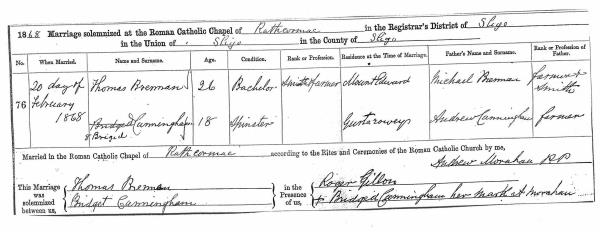 1868 Marriage solemnized at the Roman Catholic Chapel of Rathcormac in the Registrar's District of Sligo
in the Union of Sligo in the County of Sligo
No. When Married. Name and Surname. Age. Condition. Rank or Profession. Residence at the Time of Marriage. Father's Name and Surname. Rank or Profession of Father.
76 20 day of February 1868 Thomas Brennan 26 Bachelor Smith & farmer Mount Edward Michael Brennan farmer & Smith
Bridged Cunningham 18 Spinster Andrew Cunningham farmer
Married in the Roman Catholic Chapel of Rathcormac according to the Rites and Ceremonies of the Roman Catholic Church by me,
Andrew Morahan PP
This Marriage was solemnized between us,
Thomas Brennan
Bridget Cunningham
in the Presence of us,
Roger Gillon
Bridged Cunningham her mark A Morahan